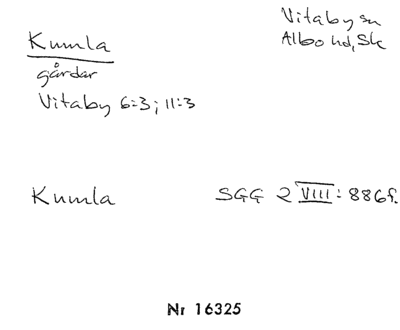 Kumla
gårdar
Vitaby 6:3; 11:3
Vitaby sn
Albo hd, Sk
Kumla
SGG 2 VIII: 886f.
Nr 16325